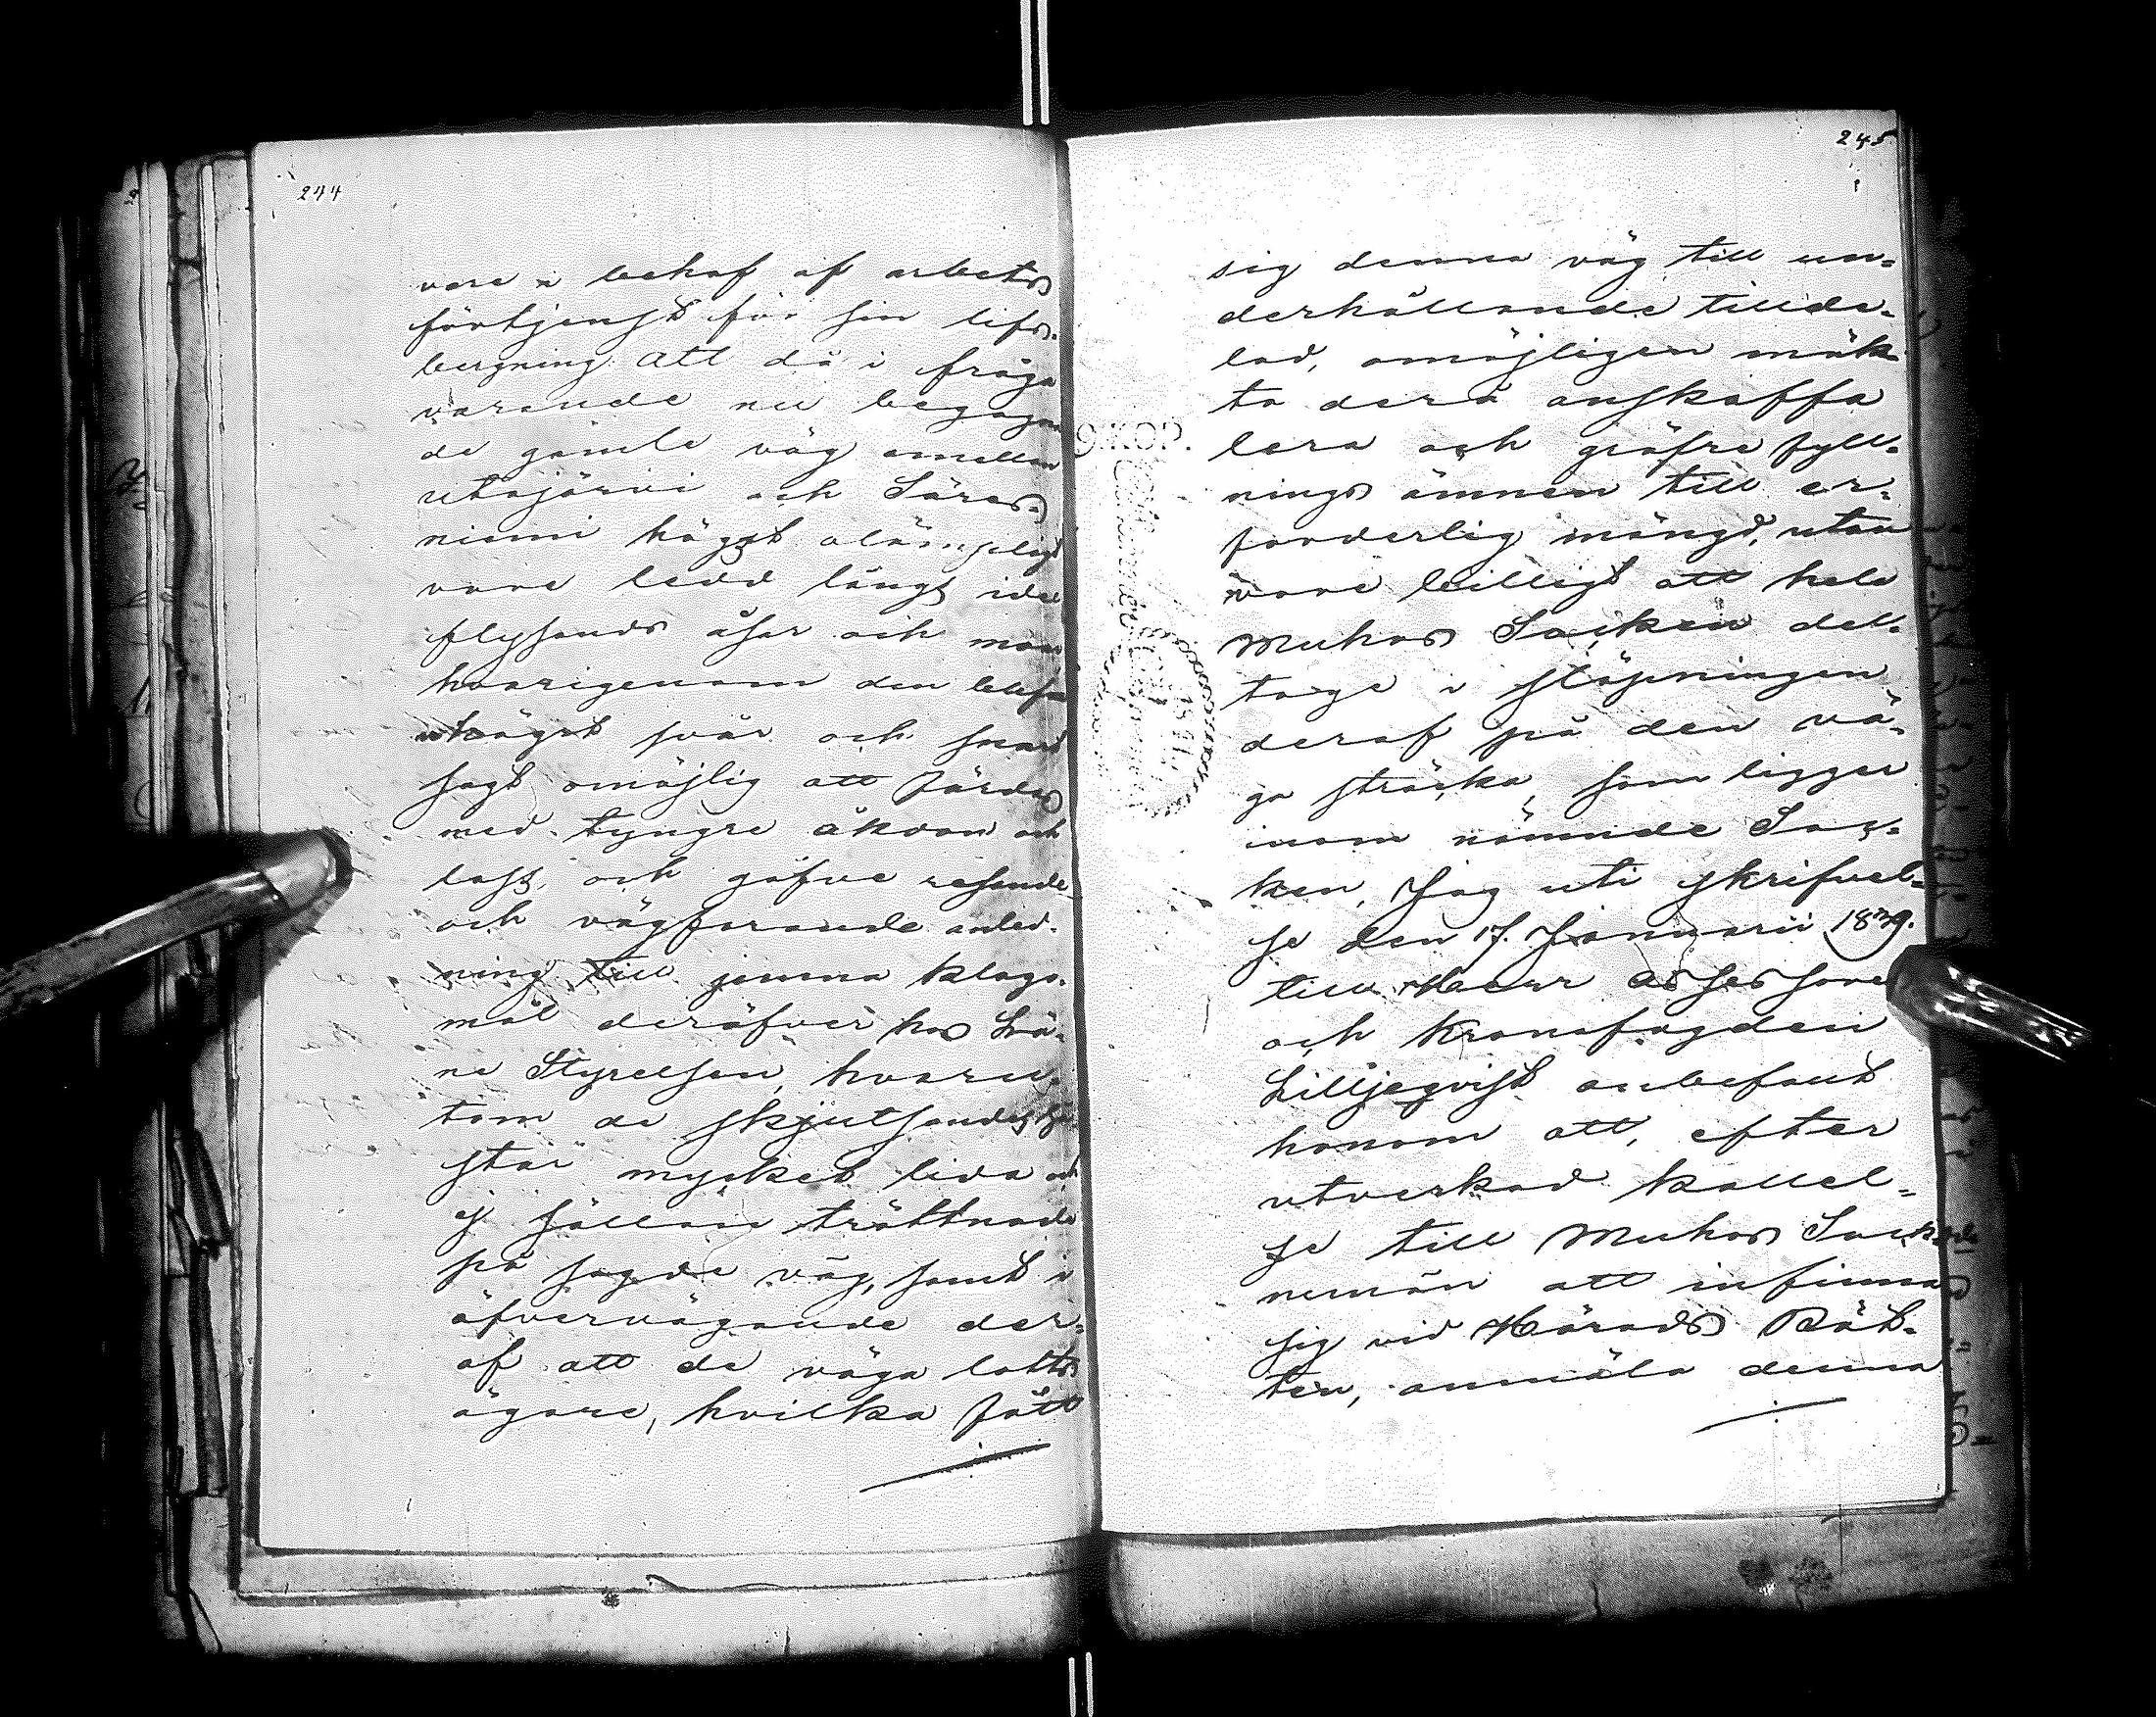 244
vore i behof af arbets
förtjenst för sin lifs-
bergning att då i fråga
varande nu begagna
de gamle väg emellan
Utajärvi och Säres-
niemi högst olämpligt
vore ledd längs idel
flygsands åsar och moar
hvarigenom den blefve
utrögst svår och snart
sagt omöjlig att färdas
med tyngre åkdon och
lass, och gåfve resande
och vägfarande anled-
ning till jemna klago-
mål deröfver hos Lä-
ne Styrelsen, hvaru-
tom de skjutsandes hä-
star mycket lida och
ej sällan tröttnade
på sagde väg, samt i
öfvervägande der-
af att de väga lotts
ägare, hvilka fått
245
sig denna väg till un-
derhållande tillde-
lad, omöjligen mäk-
ta derå anskaffa
lera och gröfre fyll-
nings ämnen till er-
forderlig mängd, utan
vore billigt att hela
Muhos Socken del-
toge i släpningen
deraf på den vä-
ga sträcka, som ligger
inom nämnde Soc-
ken, Jag uti skrifvel-
se den 17. Januarii 1829.
till Herr Assessoren
och Kronofogden
Lilljeqvist anbefalt
honom att, efter
utverkad kallel-
se till Muhos Socke-
nemän att infinna
sig vid Härads Rät-
ten, anmäla denna
9. KOP.